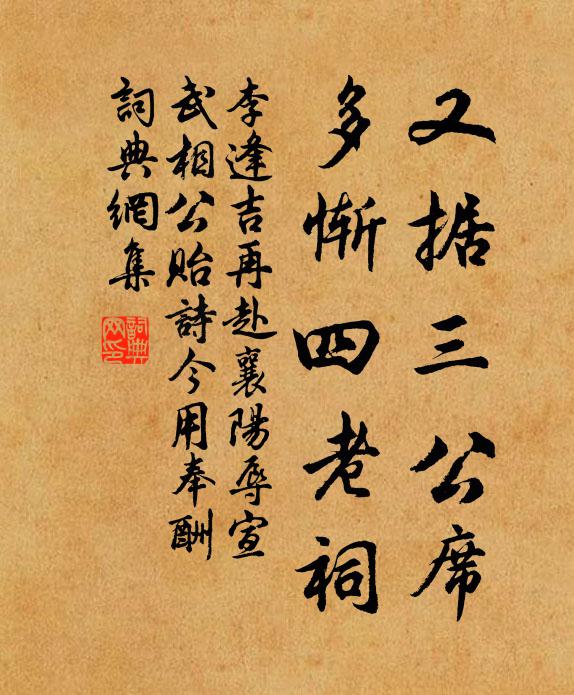 又据三公席
多慚四老祠
李逢吉再赴襄陽辱宣
武相公貽詩今用奉酬
詞典網集
詞典
网印